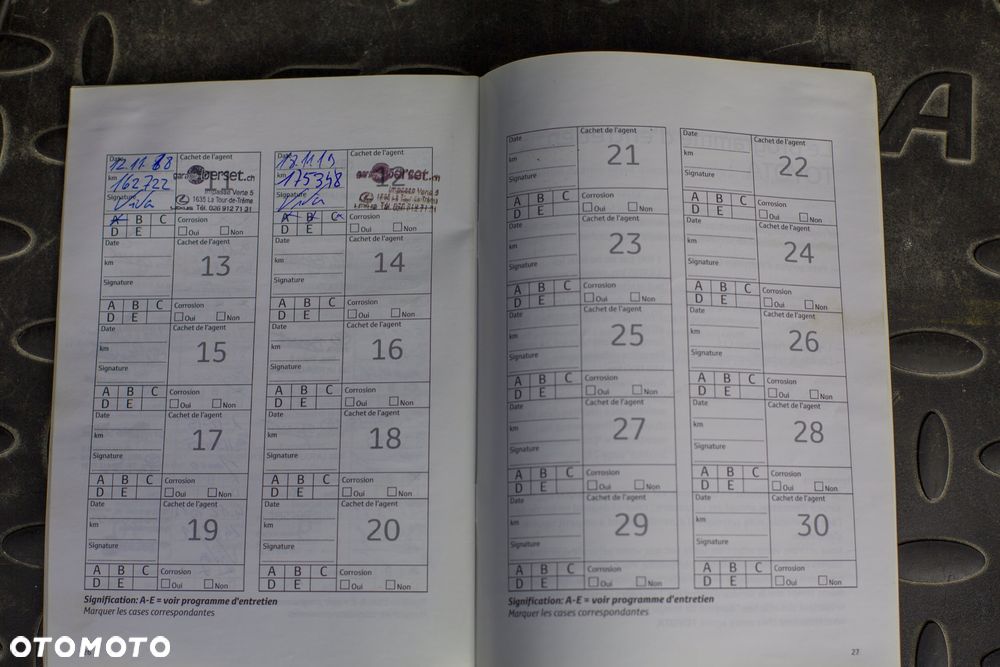 Date 12.11.18
km 162722
Signature
Cachet de l'agent
11
garageperset.ch
Impasse Verte 5
1635 La Tour-de-Trême
Tél. 026 912 71 31
A B C
D E
Corrosion
Oui Non
Date 12.11.19
km 175348
Signature
Cachet de l'agent
12
Impasse Verte 5
1635 La Tour-de-Trême
Tél. 026 912 71 31
A B C
D E
Corrosion
Oui Non
Date
km
Signature
Cachet de l'agent
13
A B C
D E
Corrosion
Oui Non
Date
km
Signature
Cachet de l'agent
14
A B C
D E
Corrosion
Oui Non
Date
km
Signature
Cachet de l'agent
15
A B C
D E
Corrosion
Oui Non
Date
km
Signature
Cachet de l'agent
16
A B C
D E
Corrosion
Oui Non
Date
km
Signature
Cachet de l'agent
17
A B C
D E
Corrosion
Oui Non
Date
km
Signature
Cachet de l'agent
18
A B C
D E
Corrosion
Oui Non
Date
km
Signature
Cachet de l'agent
19
A B C
D E
Corrosion
Oui Non
Date
km
Signature
Cachet de l'agent
20
A B C
D E
Corrosion
Oui Non
Signification: A-E = voir programme d'entretien
Marquer les cases correspondantes
Date
km
Signature
Cachet de l'agent
21
A B C
D E
Corrosion
Oui Non
Date
km
Signature
Cachet de l'agent
22
A B C
D E
Corrosion
Oui Non
Date
km
Signature
Cachet de l'agent
23
A B C
D E
Corrosion
Oui Non
Date
km
Signature
Cachet de l'agent
24
A B C
D E
Corrosion
Oui Non
Date
km
Signature
Cachet de l'agent
25
A B C
D E
Corrosion
Oui Non
Date
km
Signature
Cachet de l'agent
26
A B C
D E
Corrosion
Oui Non
Date
km
Signature
Cachet de l'agent
27
A B C
D E
Corrosion
Oui Non
Date
km
Signature
Cachet de l'agent
28
A B C
D E
Corrosion
Oui Non
Date
km
Signature
Cachet de l'agent
29
A B C
D E
Corrosion
Oui Non
Date
km
Signature
Cachet de l'agent
30
A B C
D E
Corrosion
Oui Non
Signification: A-E = voir programme d'entretien
Marquer les cases correspondantes
27
A
OTOMOTO